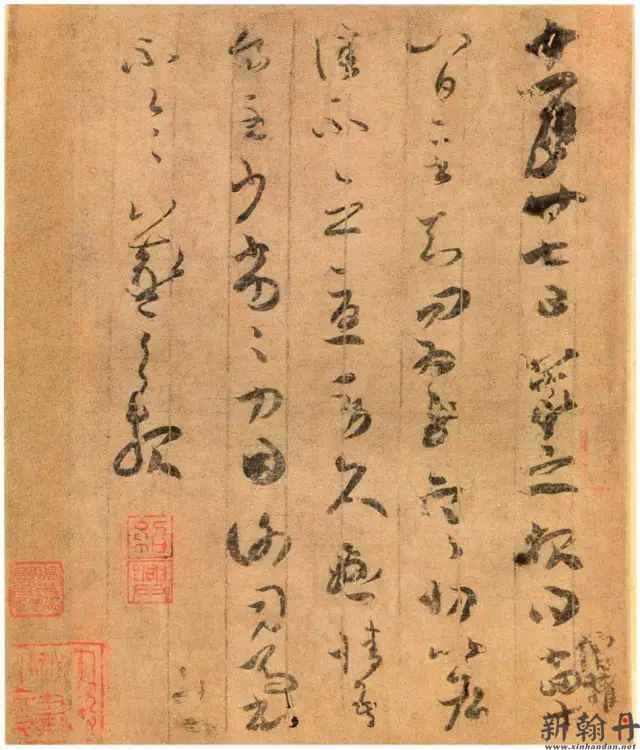 十一月廿七日羲之報得十四十
八日二書知問為慰寒切比各
佳不念憂勞久懸情吾
食至少劣劣力因謝司馬書
不一一羲之報
僧權
紹興
新翰丹
www.xinhandan.net